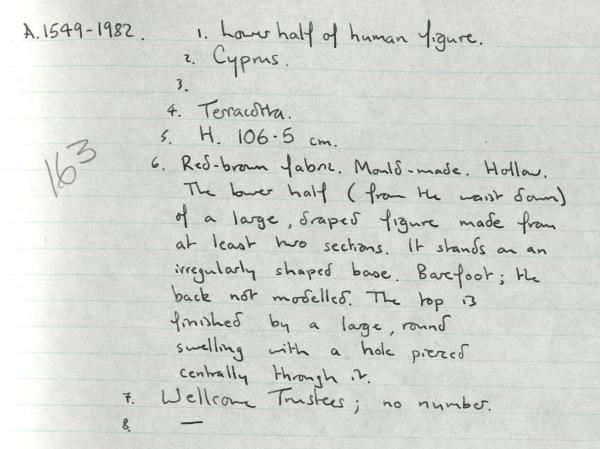 A.1549-1982. 1. Lower half of human figure.
2. Cyprus.
3.
4. Terracotta.
5. H. 106.5 cm.
163
6. Red-brown fabric. Mould-made. Hollow.
The lower half (from the waist down)
of a large, draped figure made from
at least two sections. It stands on an
irregularly shaped base. Barefoot; the
back not modelled. The top is
finished by a large, round
swelling with a hole pierced
centrally through it.
7. Wellcome Trustees; no number.
8. —